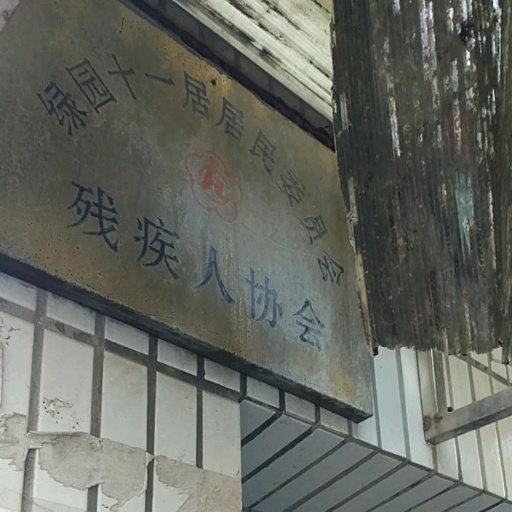 绿园十一居居民委员会
残疾人协会